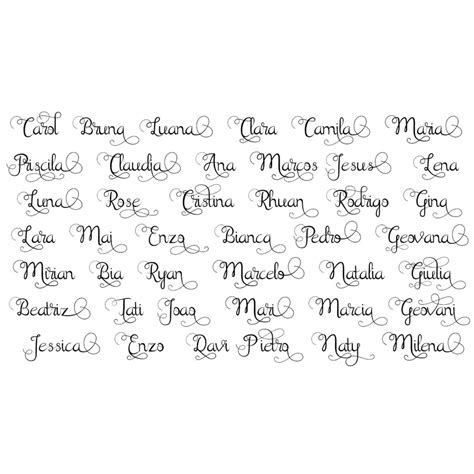 Carol Bruna Luana Clara Camila Maria
Priscila Claudia Ana Marcos Jesus Lena
Luna Rose Cristina Rhuan Rodrigo Gina
Lara Mai Enzo Bianca Pedro Geovana
Mirian Bia Ryan Marcelo Natalia Giulia
Beatriz Tati Joao Mari Marcia Geovani
Jessica Enzo Davi Pietro Naty Milena